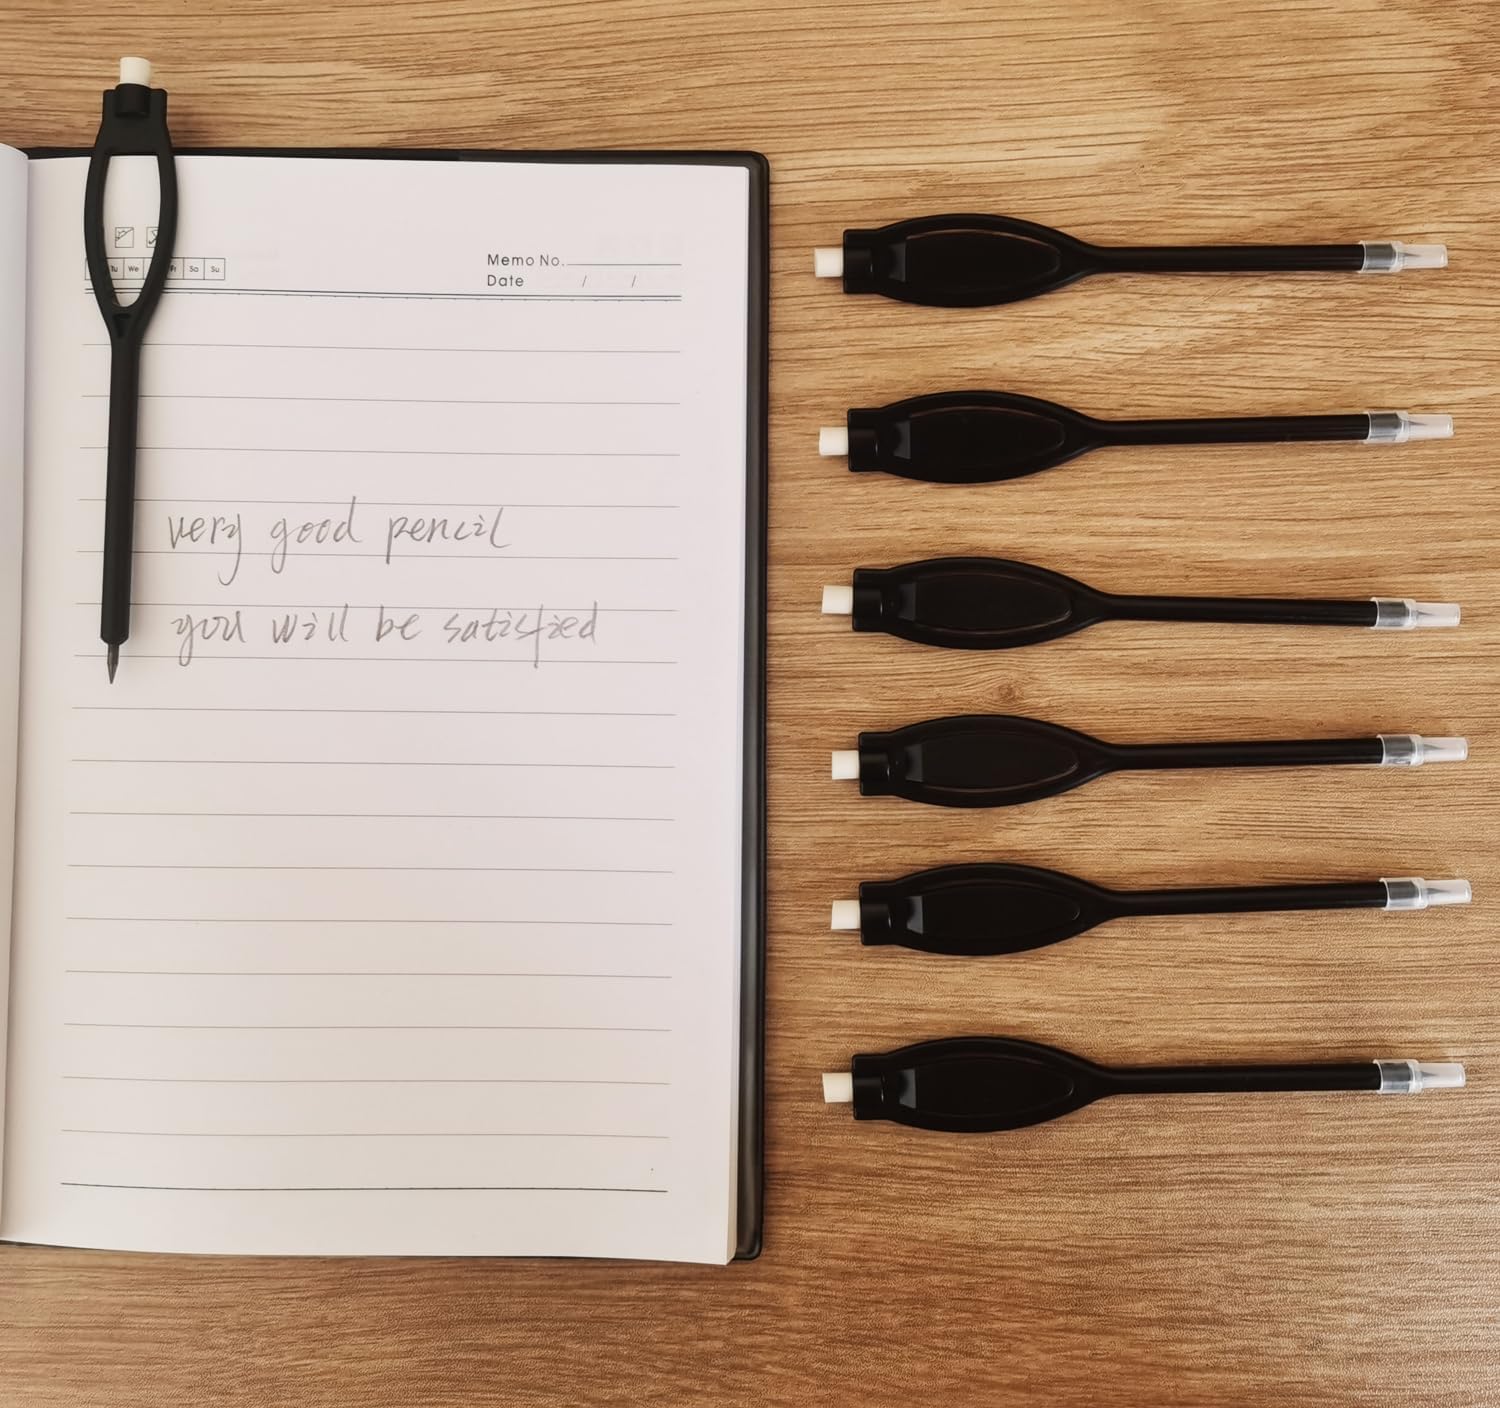 Memo No.
Date / /
Tu We Fr Sa Su
very good pencil
you will be satisfied